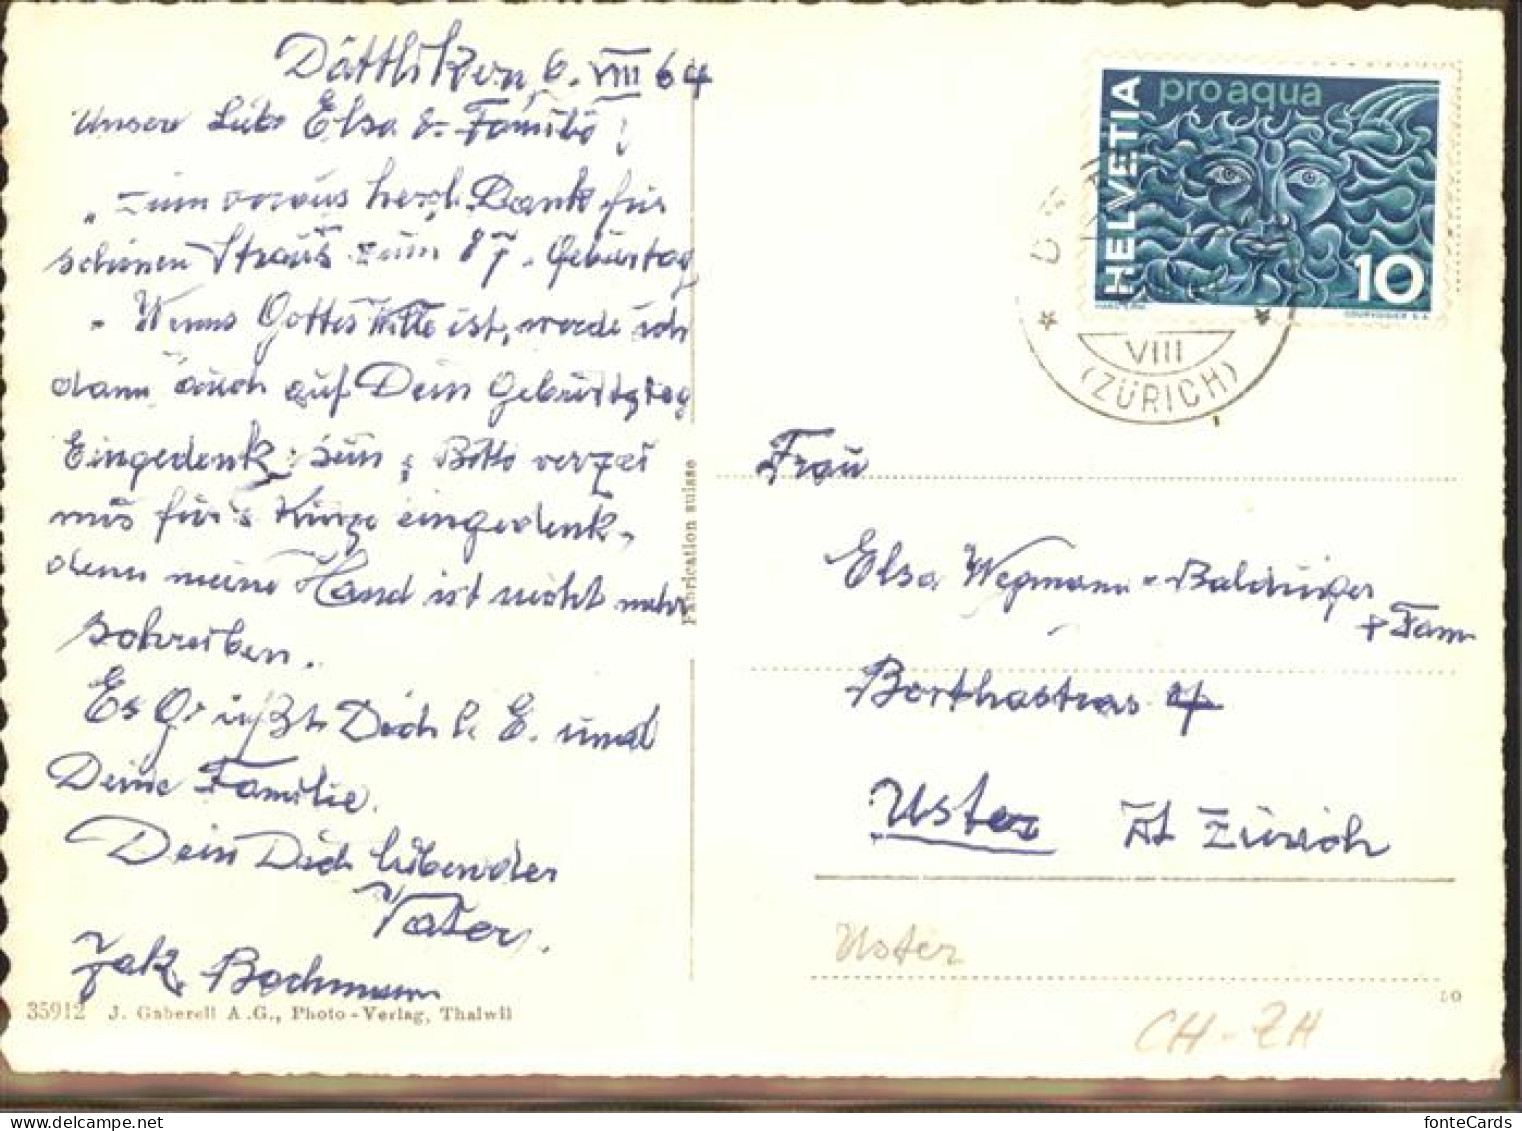 Dättlikon, 6. VIII 64
Unsere Liebe Elsa & Familie!
„Zum voraus herzl. Dank für
schönen Strauss zum 87. Geburtag
Wenns Gottes Wille ist, werde ich
dann auch auf Dein Geburtstag
Eingedenk sein, Bitte verzei
mis für's Kurze eingedenk,
denn meine Hand ist nicht mehr
schreiben.
Es Grüsst Dich l. E. und
Deine Familie.
Dein Dich liebender
Vater.
Jak. Bachmann
35912 J. Gaberell A.G., Photo-Verlag, Thalwil
Fabrication suisse
HELVETIA
pro aqua
10
COURVOISIER S.A.
VIII
(ZÜRICH)
Frau
Elsa Wegmann-Baldinger
+ Fam
Berthastras 4
Uster Kt Zürich
Uster
CH-ZH
fonteCards